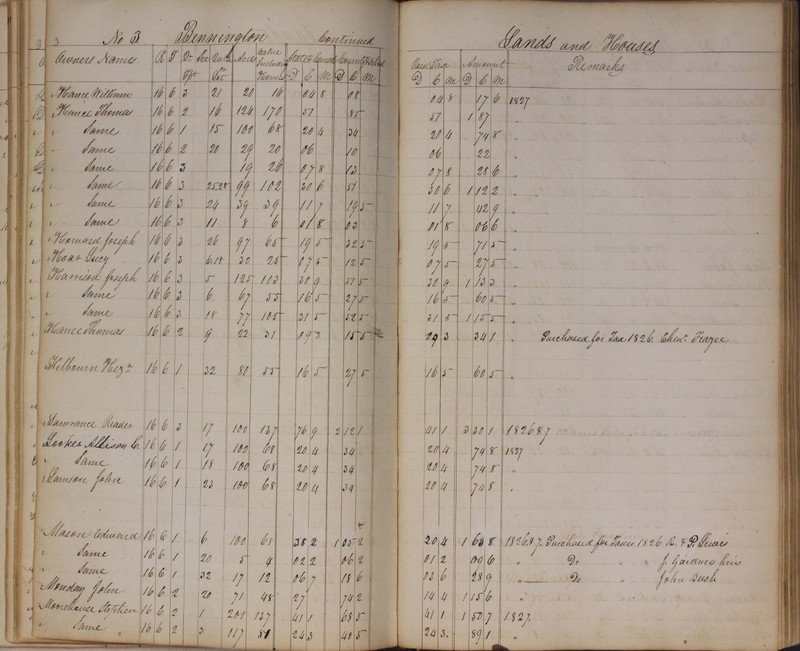 No 3 Bennington Continued
Lands and Houses
Owners Names R T Sec Acres Value Houses State & Canal D C M D C M
Road Tax Amount Remarks
D C M D C M
Hance William 16 6 3 21 20 16 04 8 08 04 8 17 6 1827
Hance Thomas 16 6 2 16 124 170 51 85 51 1 87 "
" Same 16 6 1 15 100 68 20 4 34 20 4 74 8 "
" Same 16 6 2 20 29 20 06 10 06 22 "
" Same 16 6 3 19 26 07 8 13 07 8 28 6 "
" Same 16 6 3 25.28 99 102 30 6 51 30 6 1 12 2 "
" Same 16 6 3 24 39 39 11 7 19 5 11 7 42 9 "
" Same 16 6 3 11 8 6 01 8 03 01 8 06 6 "
Howard Joseph 16 6 3 26 97 65 19 5 32 5 19 5 71 5 "
Hoar Lucy 16 6 3 6.18 32 25 07 5 12 5 07 5 27 5 "
Harrison Joseph 16 6 3 5 125 113 30 9 57 5 30 9 1 13 3 "
" Same 16 6 3 6 67 55 16 5 27 5 16 5 60 5 "
" Same 16 6 3 18 77 105 31 5 52 5 31 5 1 15 5 "
Hance Thomas 16 6 2 9 22 31 09 3 15 5 09 3 34 1 " Purchased for Tax 1826.
Kilbourn Hezh 16 6 1 32 80 55 16 5 27 5 16 5 60 5 "
Lawrence Reader 16 6 3 17 102 137 76 9 2 12 1 41 1 3 30 1 1826&7
Looker Allison C. 16 6 1 17 100 68 20 4 34 20 4 74 8 1827
" Same 16 6 1 18 100 68 20 4 34 20 4 74 8 "
Lamson John 16 6 1 23 100 68 20 4 34 20 4 74 8 "
Mason Edward 16 6 1 6 100 68 38 2 1 05 2 20 4 1 63 8 1826&7. Purchased for Taxes 1826
" Same 16 6 1 20 5 4 02 2 06 2 01 2 09 6 " Do " J. Gardiner heirs
" Same 16 6 1 32 17 12 06 7 18 6 03 6 28 9 " Do " John Bush
Monday John 16 6 2 20 71 48 27 74 2 14 4 1 15 6 "
Morehouse Stephen 16 6 2 1 201 137 41 1 68 5 41 1 1 50 7 1827.
" Same 16 6 2 3 117 81 24 3 40 5 24 3. 89 1 "